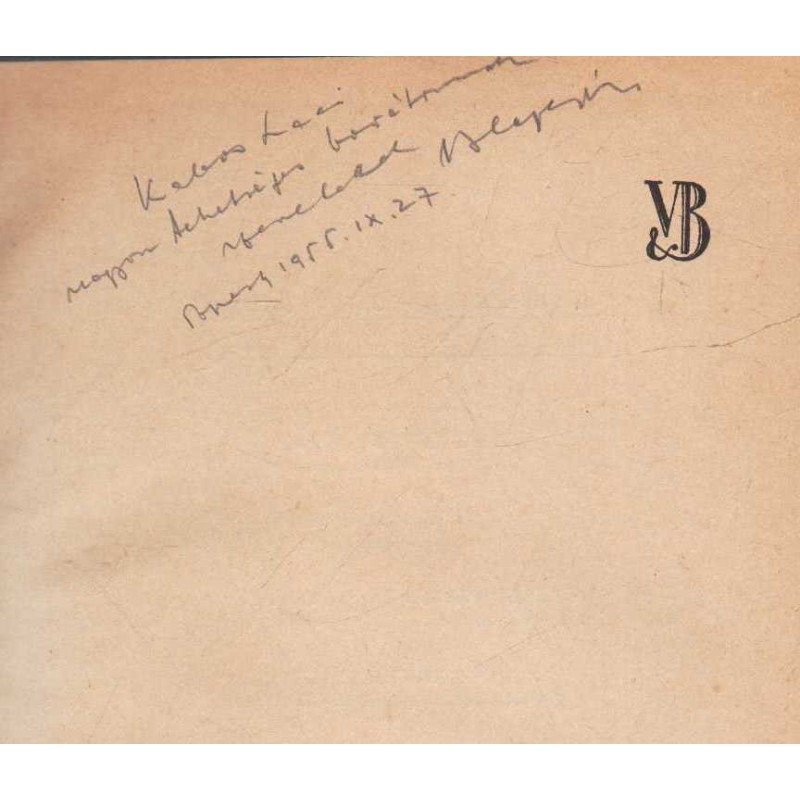 Kabos Laci
nagyon tehetséges barátomnak
szeretettel
Bpest, 1955. IX. 27.
V&B